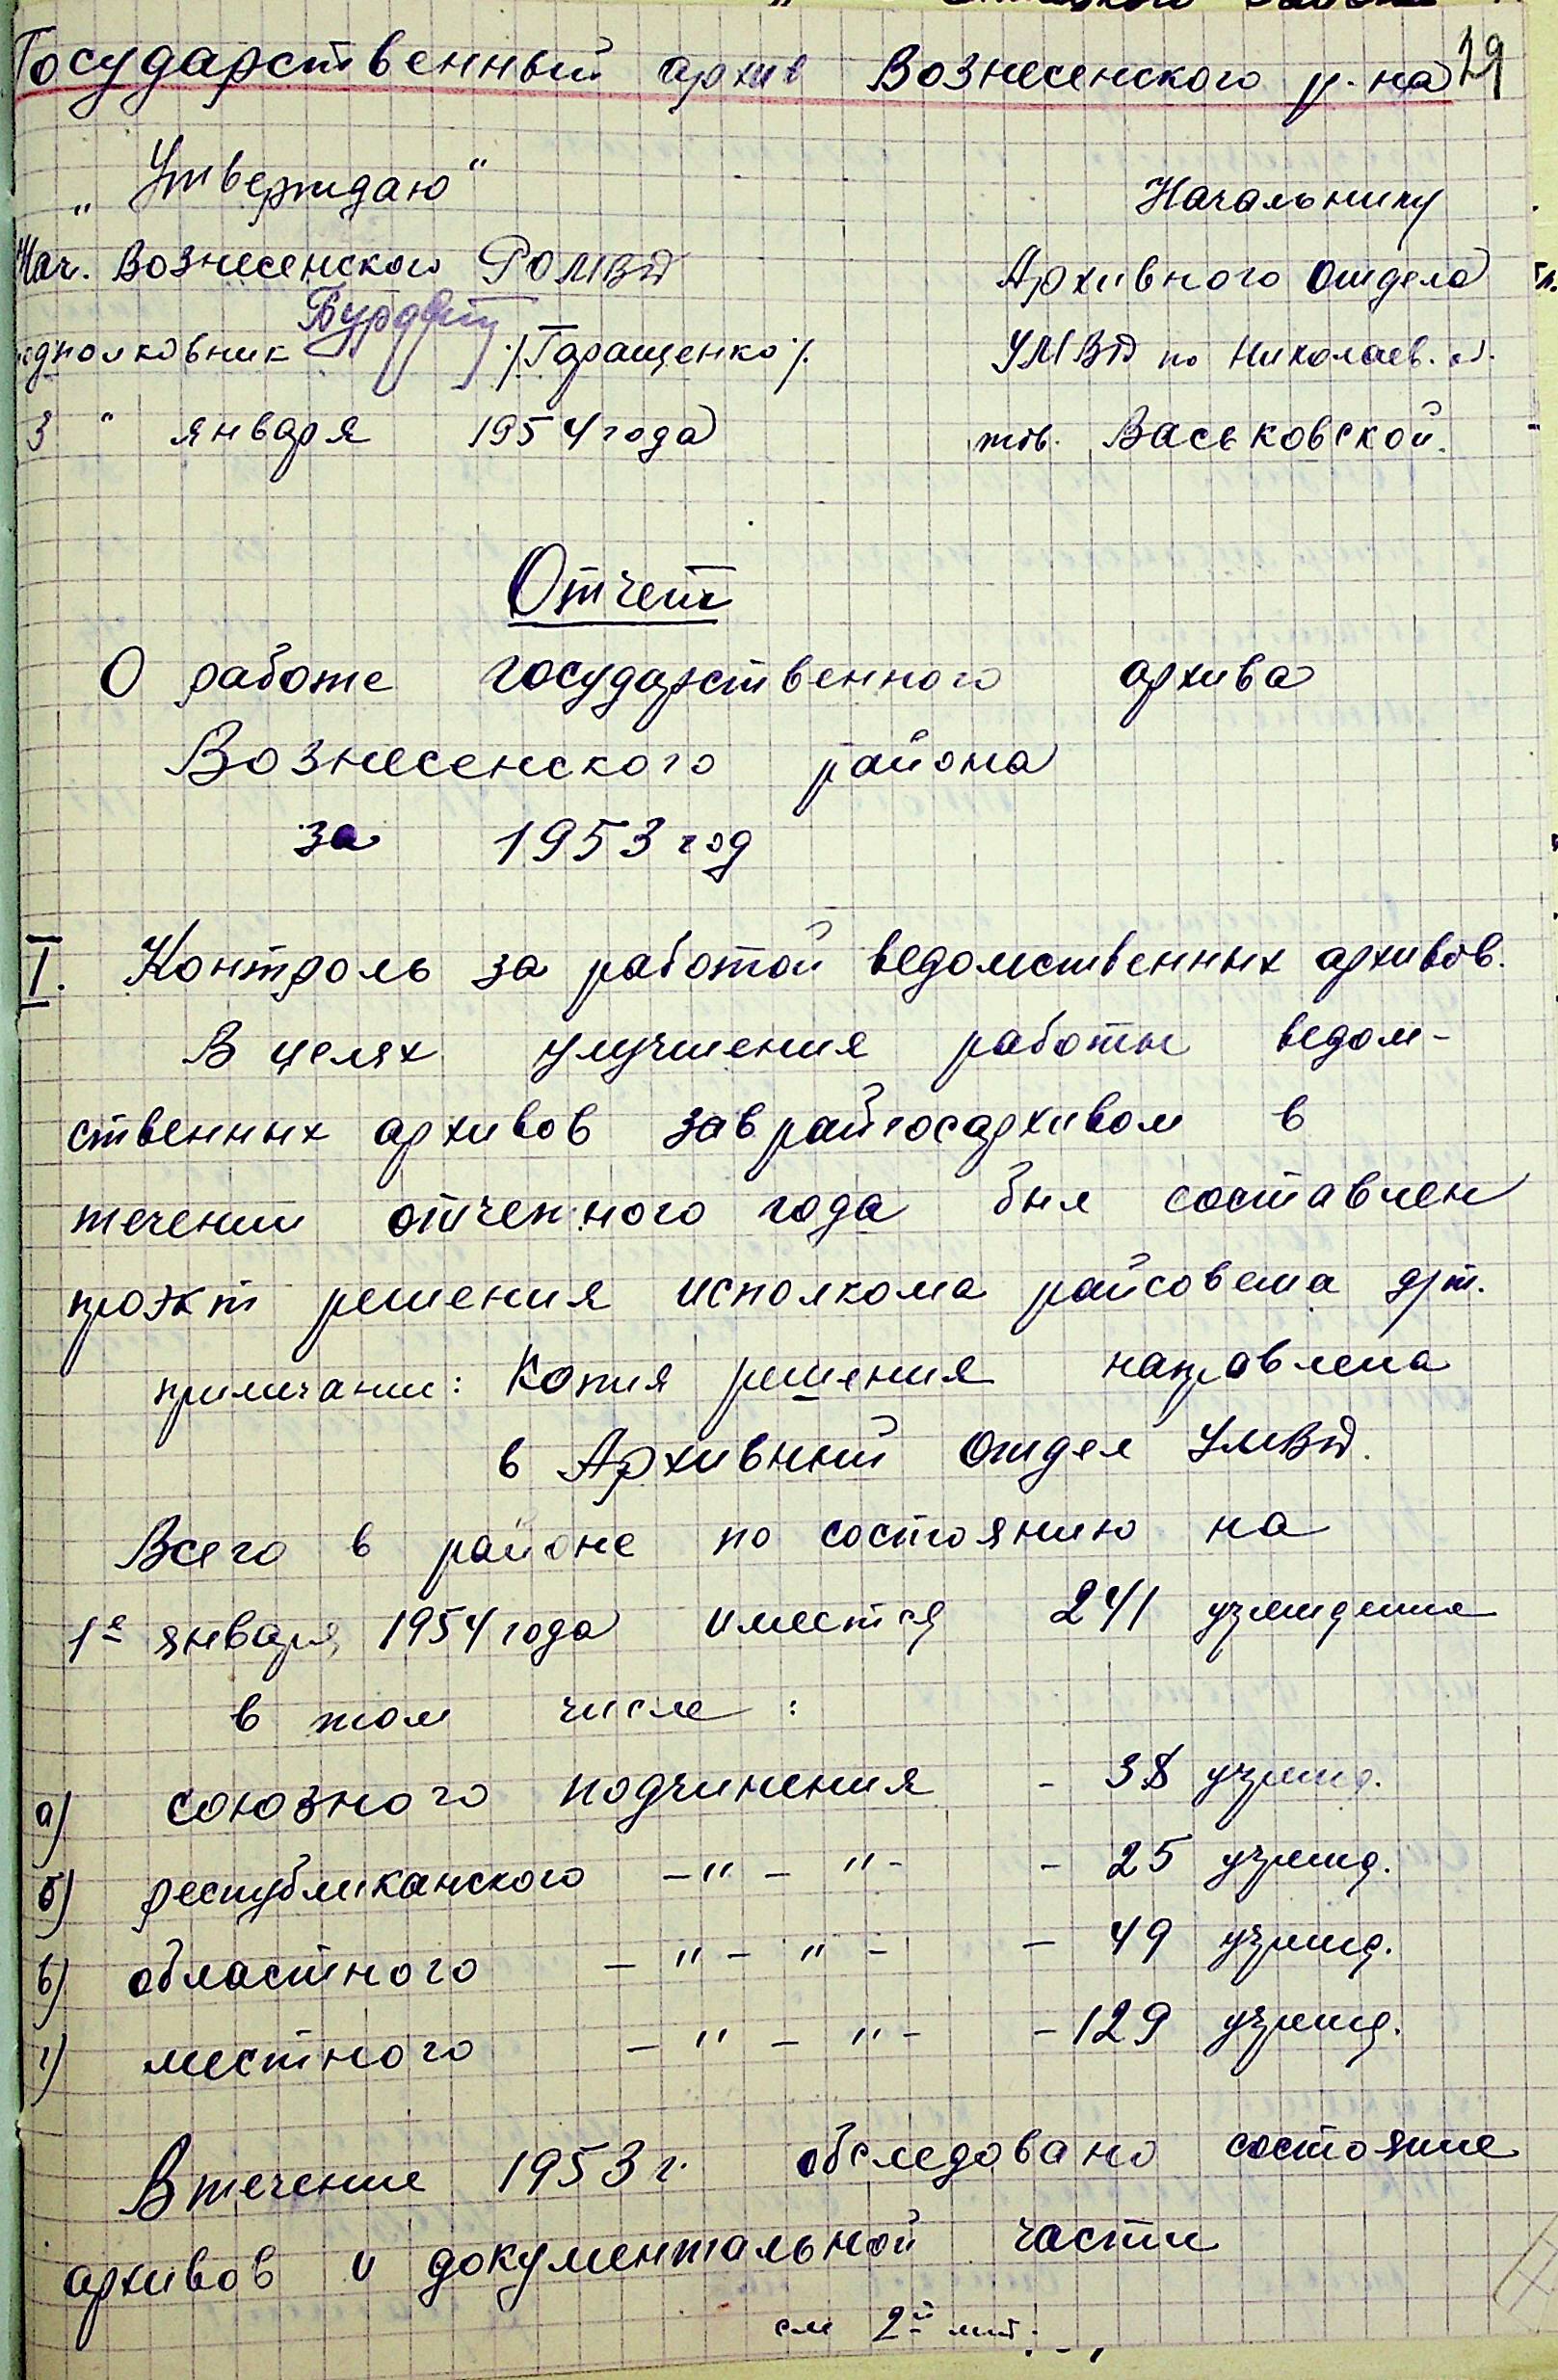 Государственный архив Вознесенского р-на 29
„Утверждаю“
Начальнику
Нач. Вознесенского РОМВД
Архивного отдела
подполковник /Гаращенко/.
УМВД по Николаев. о.
3 " января 1954 года
тов. Васьковской.
Отчет
О работе государственного архива
Вознесенского района
за 1953 год
I. Контроль за работой ведомственных архивов.
В целях улучшения работы ведом-
ственных архивов зав райгосархивом в
течении отчетного года был составлен
проэкт решения исполкома райсовета д/т.
примечании: Копия решения направлена
в Архивный отдел УМВД.
Всего в районе по состоянию на
1е января 1954 года имеется 241 учреждение
в том числе:
а) союзного подчинения - 38 учрежд.
б) республиканского -"- "- - 25 учрежд.
в) областного -"-"- - 49 учрежд.
г) местного -"-"- - 129 учрежд.
В течение 1953 г. обследовано состояние
архивов и документальной части
см 2й лист.